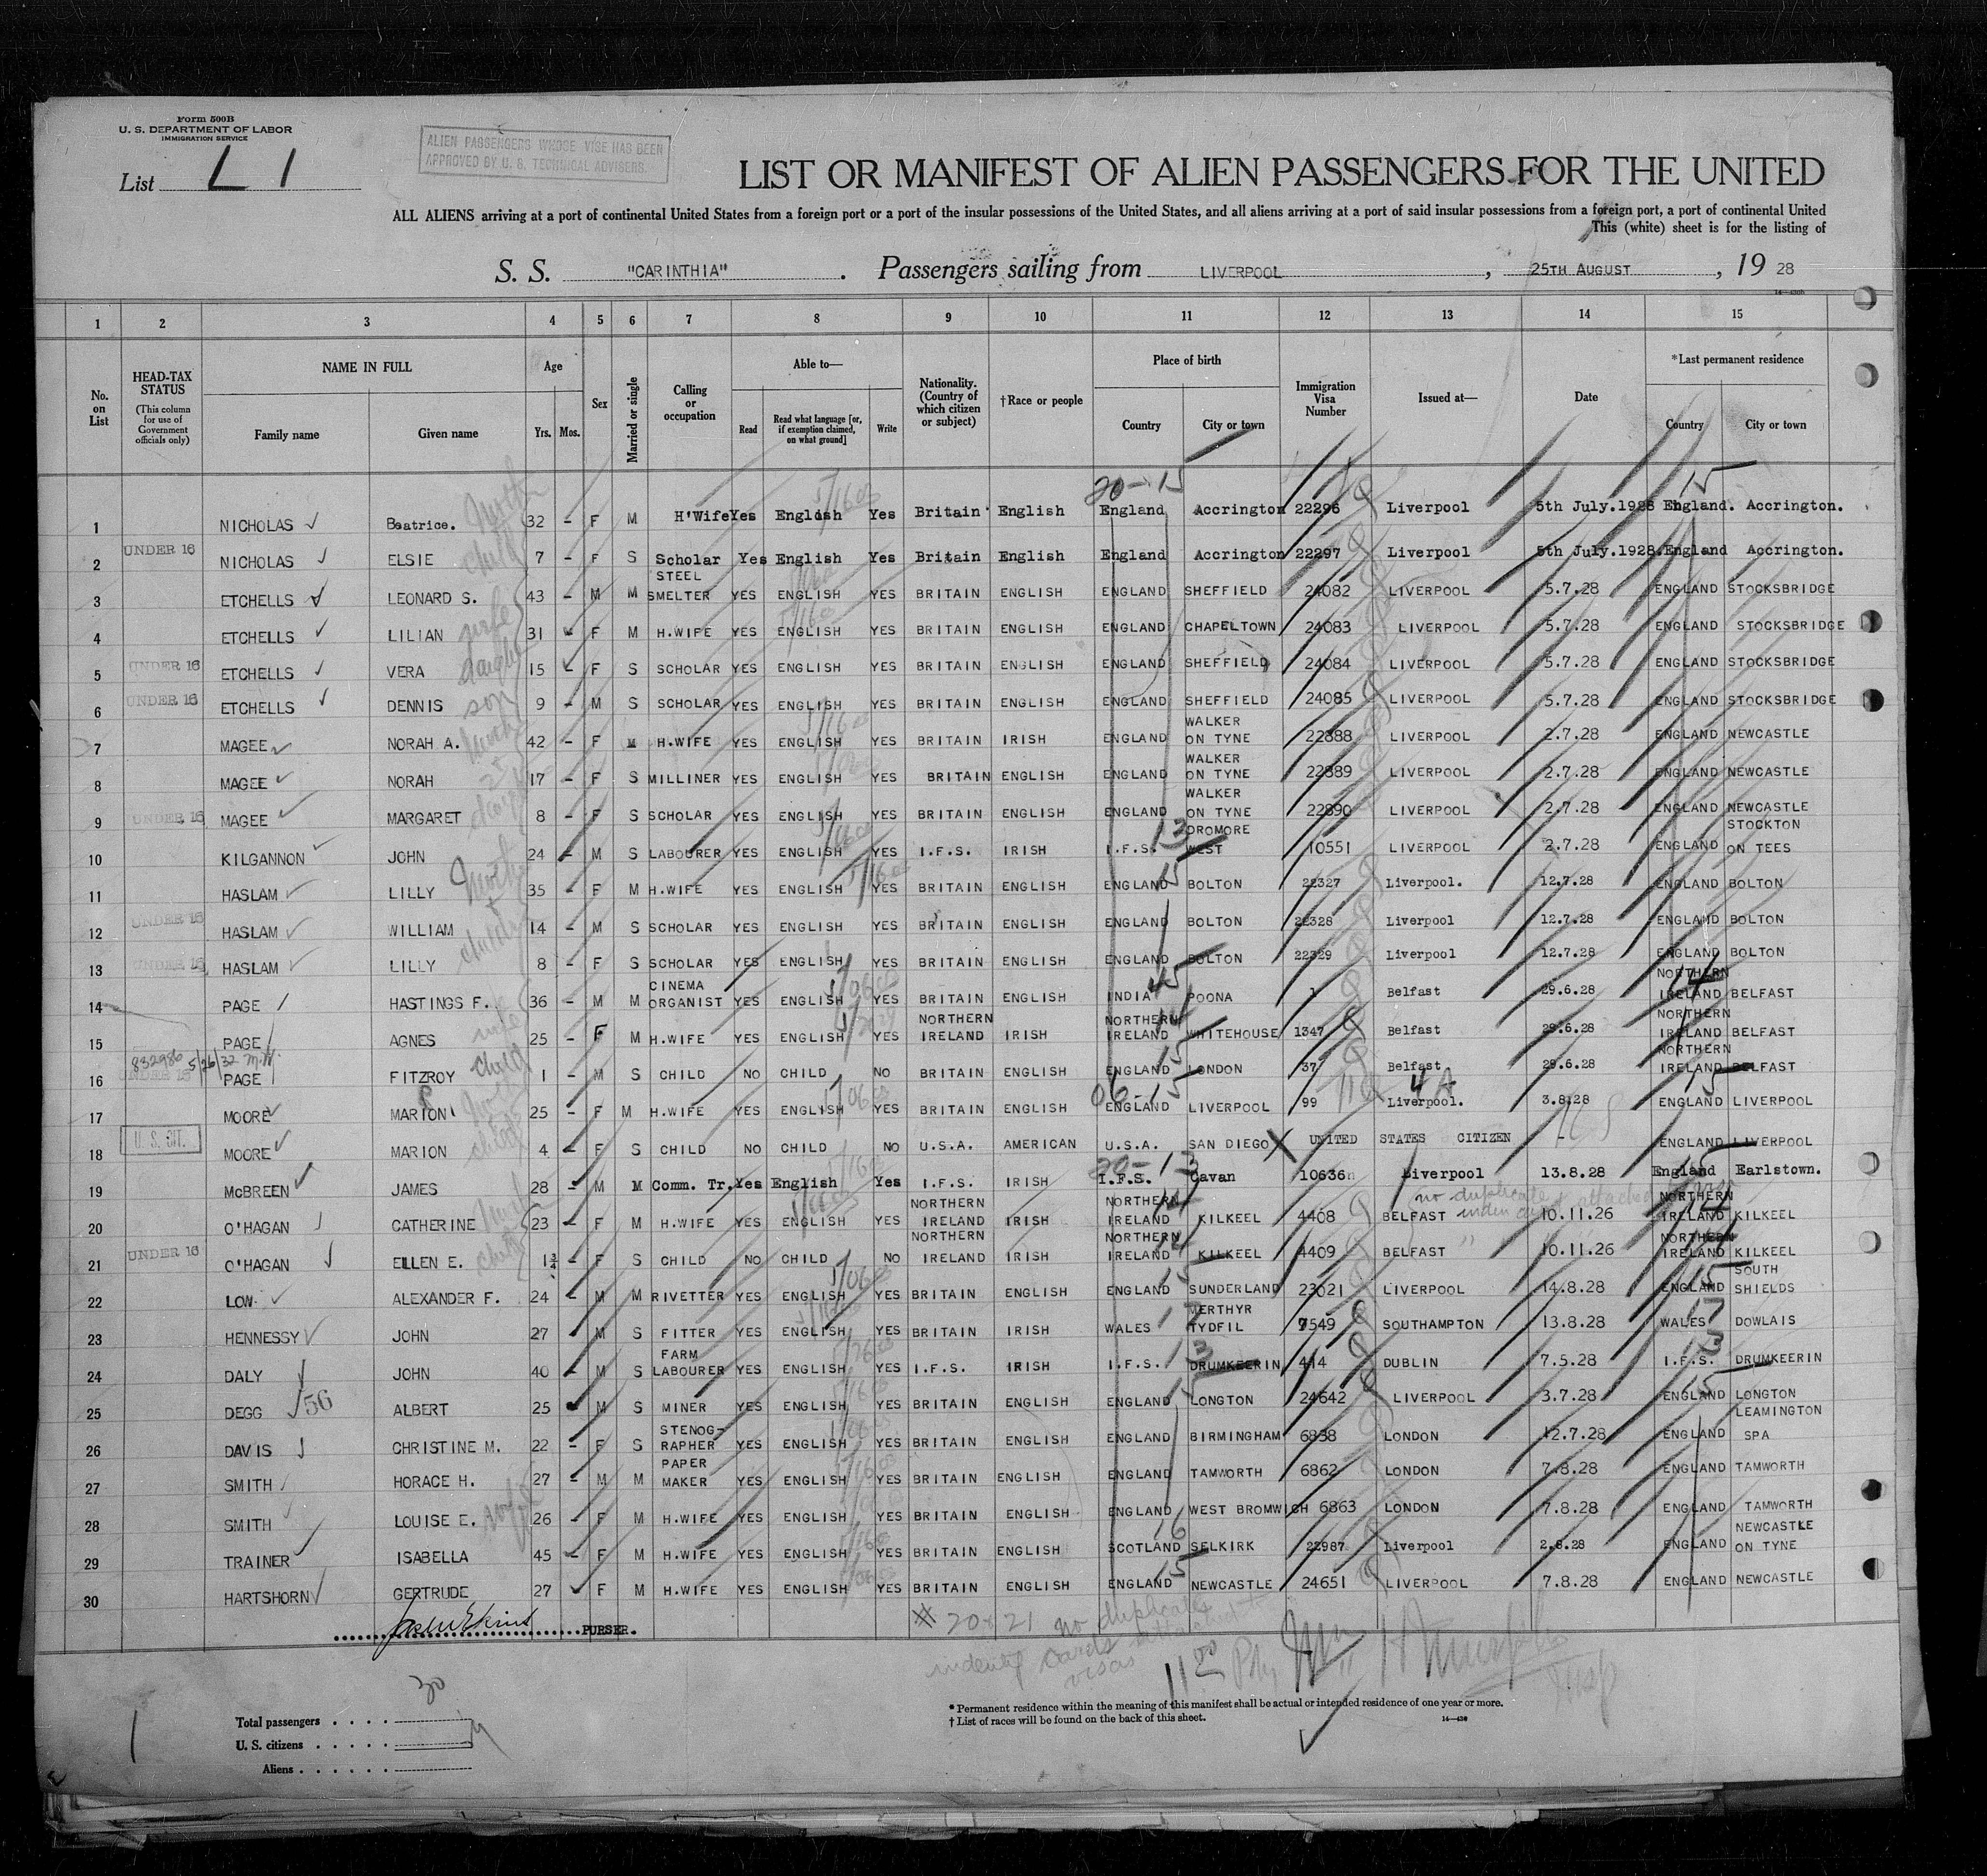 Form 500B
U. S. DEPARTMENT OF LABOR
IMMIGRATION SERVICE
List L 1
ALIEN PASSENGERS WHOSE VISE HAS BEEN
APPROVED BY U. S. TECHNICAL ADVISERS.
LIST OR MANIFEST OF ALIEN PASSENGERS FOR THE UNITED
ALL ALIENS arriving at a port of continental United States from a foreign port or a port of the insular possessions of the United States, and all aliens arriving at a port of said insular possessions from a foreign port, a port of continental United
This (white) sheet is for the listing of
S. S. "CARINTHIA" . Passengers sailing from LIVERPOOL , 25TH AUGUST , 19 28
14-430b
1 2 3 4 5 6 7 8 9 10 11 12 13 14 15
No. on List HEAD-TAX STATUS (This column for use of Government officials only) NAME IN FULL Family name Given name Age Yrs. Mos. Sex Married or single Calling or occupation Able to— Read Read what language [or, if exemption claimed, on what ground] Write Nationality. (Country of which citizen or subject) †Race or people Place of birth Country City or town Immigration Visa Number Issued at— Date *Last permanent residence Country City or town
20-15 15
1 NICHOLAS Beatrice. Mother 32 - F M H'Wife Yes English Yes Britain English England Accrington 22296 Liverpool 5th July.1928 England. Accrington.
2 UNDER 16 NICHOLAS ELSIE child 7 - F S Scholar Yes English Yes Britain English England Accrington 22297 Liverpool 5th July.1928. England Accrington.
3 ETCHELLS LEONARD S. 43 - M M STEEL SMELTER YES ENGLISH YES BRITAIN ENGLISH ENGLAND SHEFFIELD 24082 LIVERPOOL 5.7.28 ENGLAND STOCKSBRIDGE
4 ETCHELLS LILIAN wife 31 - F M H.WIFE YES ENGLISH YES BRITAIN ENGLISH ENGLAND CHAPELTOWN 24083 LIVERPOOL 5.7.28 ENGLAND STOCKSBRIDGE
5 UNDER 16 ETCHELLS VERA 15 - F S SCHOLAR YES ENGLISH YES BRITAIN ENGLISH ENGLAND SHEFFIELD 24084 LIVERPOOL 5.7.28 ENGLAND STOCKSBRIDGE
6 UNDER 16 ETCHELLS DENNIS son 9 - M S SCHOLAR YES ENGLISH YES BRITAIN ENGLISH ENGLAND SHEFFIELD 24085 LIVERPOOL 5.7.28 ENGLAND STOCKSBRIDGE
7 MAGEE NORAH A. 42 - F M H.WIFE YES ENGLISH YES BRITAIN IRISH ENGLAND WALKER ON TYNE 22388 LIVERPOOL 2.7.28 ENGLAND NEWCASTLE
8 MAGEE NORAH 17 - F S MILLINER YES ENGLISH YES BRITAIN ENGLISH ENGLAND WALKER ON TYNE 22389 LIVERPOOL 2.7.28 ENGLAND NEWCASTLE
9 UNDER 16 MAGEE MARGARET 8 - F S SCHOLAR YES ENGLISH YES BRITAIN ENGLISH ENGLAND WALKER ON TYNE 22390 LIVERPOOL 2.7.28 ENGLAND NEWCASTLE
10 KILGANNON JOHN 24 - M S LABOURER YES ENGLISH YES I.F.S. IRISH I.F.S. 13 DROMORE WEST 10551 LIVERPOOL 2.7.28 ENGLAND STOCKTON ON TEES
11 HASLAM LILLY Mother 35 - F M H.WIFE YES ENGLISH YES BRITAIN ENGLISH ENGLAND 15 BOLTON 22327 Liverpool. 12.7.28 ENGLAND BOLTON
12 UNDER 16 HASLAM WILLIAM 14 - M S SCHOLAR YES ENGLISH YES BRITAIN ENGLISH ENGLAND BOLTON 22328 Liverpool 12.7.28 ENGLAND BOLTON
13 UNDER 16 HASLAM LILLY 8 - F S SCHOLAR YES ENGLISH YES BRITAIN ENGLISH ENGLAND BOLTON 22329 Liverpool 12.7.28 ENGLAND BOLTON
14 PAGE HASTINGS F. 36 - M M CINEMA ORGANIST YES ENGLISH YES BRITAIN ENGLISH INDIA 45 POONA 1 Belfast 29.6.28 NORTHERN IRELAND 14 BELFAST
15 PAGE AGNES wife 25 - F M H.WIFE YES ENGLISH YES NORTHERN IRELAND IRISH NORTHERN IRELAND 14 WHITEHOUSE 1347 Belfast 29.6.28 NORTHERN IRELAND BELFAST
16 832986 5/26/32 UNDER 16 PAGE FITZROY child 1 - M S CHILD NO CHILD NO BRITAIN ENGLISH ENGLAND 15 LONDON 37 Belfast 29.6.28 NORTHERN IRELAND BELFAST
17 MOORE MARION 25 - F M H.WIFE YES ENGLISH YES BRITAIN ENGLISH 06-15 ENGLAND LIVERPOOL 99 4A Liverpool. 3.8.28 15 ENGLAND LIVERPOOL
18 U. S. CIT. MOORE MARION child 4 - F S CHILD NO CHILD NO U.S.A. AMERICAN U.S.A. SAN DIEGO X UNITED STATES CITIZEN - ENGLAND LIVERPOOL
19 McBREEN JAMES 28 - M M Comm. Tr. Yes English Yes I.F.S. IRISH 20-13 I.F.S. Cavan 10636 Liverpool 13.8.28 England 15 Earlstown.
no duplicate
20 O'HAGAN CATHERINE 23 - F M H.WIFE YES ENGLISH YES NORTHERN IRELAND IRISH NORTHERN IRELAND 14 KILKEEL 4408 BELFAST 10.11.26 NORTHERN IRELAND 14 KILKEEL
21 UNDER 16 O'HAGAN ELLEN E. child 1¾ - F S CHILD NO CHILD NO NORTHERN IRELAND IRISH NORTHERN IRELAND 14 KILKEEL 4409 BELFAST " 10.11.26 NORTHERN IRELAND 14 KILKEEL
22 LOW. ALEXANDER F. 24 - M M RIVETTER YES ENGLISH YES BRITAIN ENGLISH ENGLAND 15 SUNDERLAND 23021 LIVERPOOL 14.8.28 ENGLAND 15 SOUTH SHIELDS
23 HENNESSY JOHN 27 - M S FITTER YES ENGLISH YES BRITAIN IRISH WALES 17 MERTHYR TYDFIL 7549 SOUTHAMPTON 13.8.28 WALES 17 DOWLAIS
24 DALY JOHN 40 - M S FARM LABOURER YES ENGLISH YES I.F.S. IRISH I.F.S. 13 DRUMKEERIN 414 DUBLIN 7.5.28 I.F.S. 13 DRUMKEERIN
25 DEGG 56 ALBERT 25 - M S MINER YES ENGLISH YES BRITAIN ENGLISH ENGLAND 15 LONGTON 24642 LIVERPOOL 3.7.28 ENGLAND 15 LONGTON
26 DAVIS CHRISTINE M. 22 - F S STENOG-RAPHER YES ENGLISH YES BRITAIN ENGLISH ENGLAND BIRMINGHAM 6838 LONDON 12.7.28 ENGLAND LEAMINGTON SPA
27 SMITH HORACE H. 27 - M M PAPER MAKER YES ENGLISH YES BRITAIN ENGLISH ENGLAND TAMWORTH 6862 LONDON 7.8.28 ENGLAND TAMWORTH
28 SMITH LOUISE E. wife 26 - F M H.WIFE YES ENGLISH YES BRITAIN ENGLISH ENGLAND WEST BROMWICH 6863 LONDON 7.8.28 ENGLAND TAMWORTH
29 TRAINER ISABELLA 45 - F M H.WIFE YES ENGLISH YES BRITAIN ENGLISH SCOTLAND 16 SELKIRK 22987 Liverpool 2.8.28 ENGLAND NEWCASTLE ON TYNE
30 HARTSHORN GERTRUDE 27 - F M H.WIFE YES ENGLISH YES BRITAIN ENGLISH ENGLAND 15 NEWCASTLE 24651 LIVERPOOL 7.8.28 ENGLAND NEWCASTLE
PURSER.
20 & 21 no duplicate
cards
visas
11 00
30
Total passengers
U. S. citizens
Aliens
* Permanent residence within the meaning of this manifest shall be actual or intended residence of one year or more.
† List of races will be found on the back of this sheet.
14-430